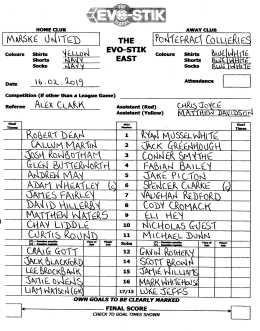 EVO-STIK
HOME CLUB
MARSKE UNITED
THE EVO-STIK EAST
AWAY CLUB
PONTEFRACT COLLIERIES
Colours Shirts YELLOW
Shorts NAVY
Socks NAVY
Colours Shirts BLUE/WHITE
Shorts BLUE/WHITE
Socks BLUE/WHITE
Date 16.02.2019
Attendance
Competition (if other than a League Game)
Referee ALEX CLARK
Assistant (Red) CHRIS JOYCE
Assistant (Yellow) MATTHEW DAVIDSON
ROBERT DEAN 1 RYAN MUSSELWHITE
CALLUM MARTIN 2 JACK GREENHOUGH
JOSH ROWBOTHAM 3 CONNER SMYTHE
GLEN BUTTERWORTH 4 FABIAN BAILEY
ANDREW MAY 5 JAKE PICTON
ADAM WHEATLEY (c) 6 SPENCER CLARKE (c)
JAMES FAIRLEY 7 VAUGHAN REDFORD
DAVID HILLERBY 8 CODY CROMACK
MATTHEW WATERS 9 ELI HEY
CHAY LIDDLE 10 NICHOLAS GUEST
CURTIS ROUND 11 MICHAEL DUNN
Subs
CRAIG GOTT 12 GAVIN ROTHERY
JACK BLACKFORD 14 SCOTT BROWN
LEE BROWBANK 15 JAMIE WILLIAMS
JAMIE OWENS 16 MARK WHITEHOUSE
LIAM WATSON (GK) 17/13 LUKE JEFFS
OWN GOALS TO BE CLEARLY MARKED
FINAL SCORE
CHECK TO GOAL TIMES SHOWN